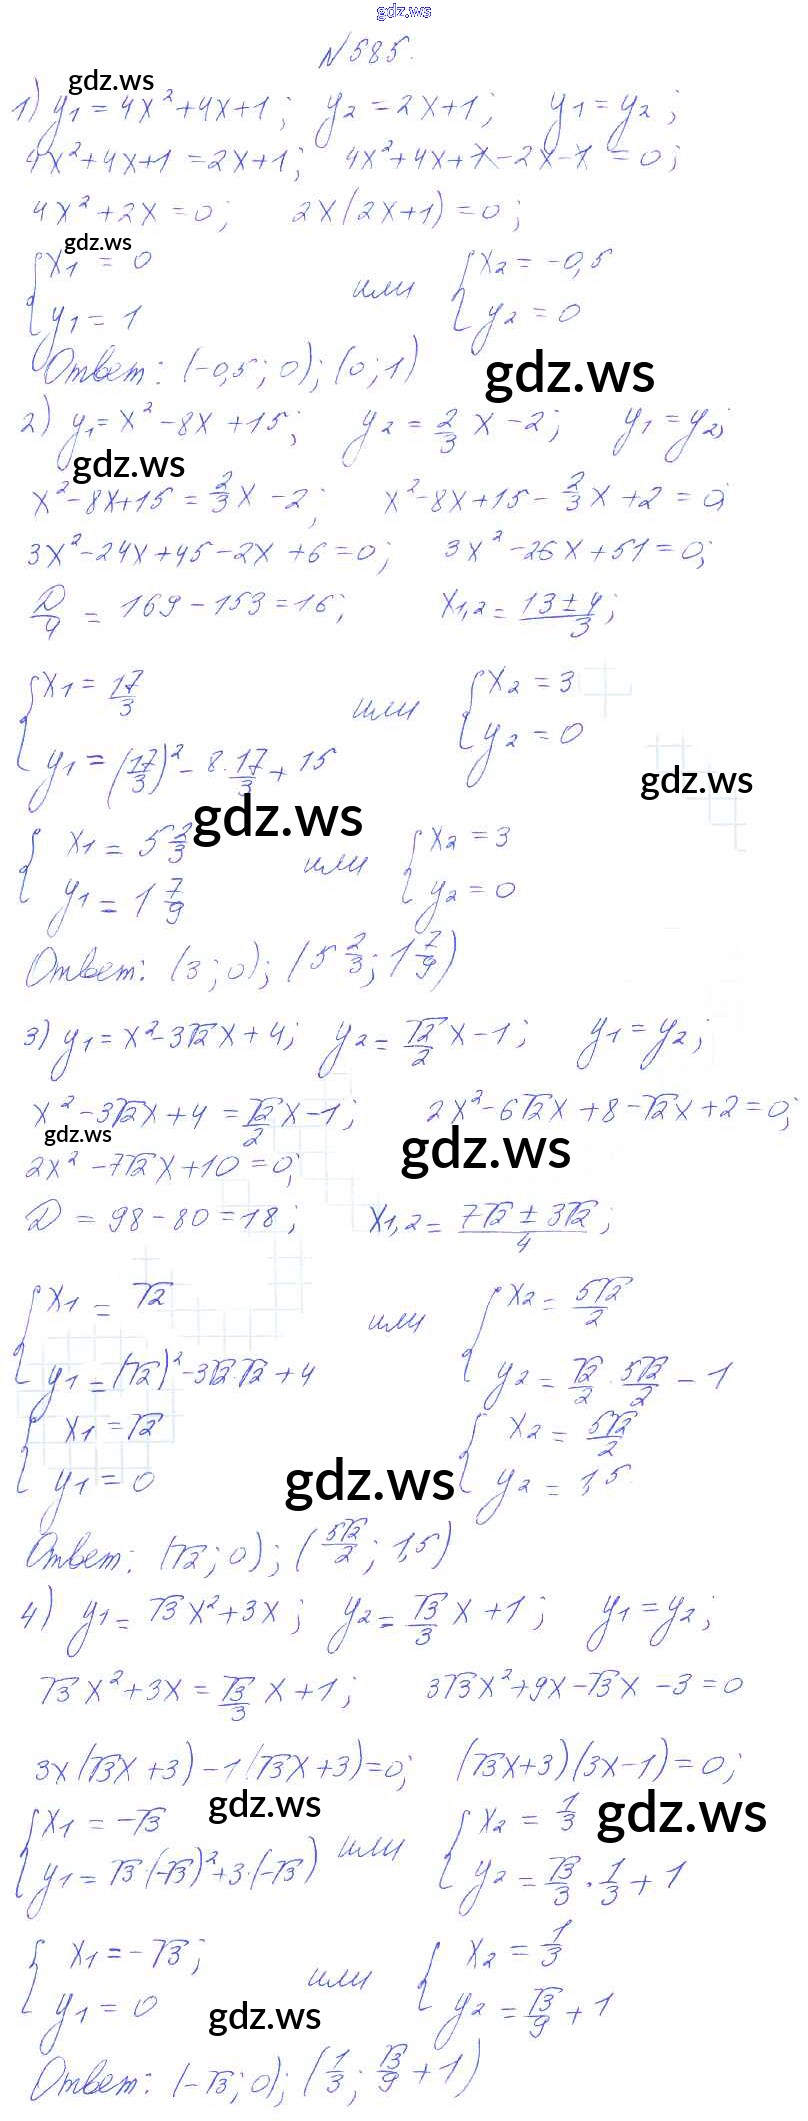 gdz.ws
№585.
gdz.ws
1) y₁ = 4x² + 4x + 1; y₂ = 2x + 1; y₁ = y₂;
4x² + 4x + 1 = 2x + 1; 4x² + 4x + 1 - 2x - 1 = 0;
4x² + 2x = 0; 2x(2x + 1) = 0;
gdz.ws
{x₁ = 0 или {x₂ = -0,5
y₁ = 1 y₂ = 0
Ответ: (-0,5; 0); (0; 1)
gdz.ws
2) y₁ = x² - 8x + 15; y₂ = 2/3 x - 2; y₁ = y₂;
gdz.ws
x² - 8x + 15 = 2/3 x - 2; x² - 8x + 15 - 2/3 x + 2 = 0;
3x² - 24x + 45 - 2x + 6 = 0; 3x² - 26x + 51 = 0;
D/4 = 169 - 153 = 16; x₁,₂ = (13 ± 4)/3;
{x₁ = 17/3 или {x₂ = 3
y₁ = (17/3)² - 8 · 17/3 + 15 y₂ = 0
gdz.ws
gdz.ws
{x₁ = 5 2/3 или {x₂ = 3
y₁ = 1 7/9 y₂ = 0
Ответ: (3; 0); (5 2/3; 1 7/9)
3) y₁ = x² - 3√2x + 4; y₂ = √2/2 x - 1; y₁ = y₂;
x² - 3√2x + 4 = √2/2 x - 1; 2x² - 6√2x + 8 - √2x + 2 = 0;
gdz.ws
gdz.ws
2x² - 7√2x + 10 = 0;
D = 98 - 80 = 18; x₁,₂ = (7√2 ± 3√2)/4;
{x₁ = √2 или {x₂ = 5√2/2
y₁ = (√2)² - 3√2·√2 + 4 y₂ = √2/2 · 5√2/2 - 1
{x₁ = √2 {x₂ = 5√2/2
y₁ = 0 y₂ = 1,5
gdz.ws
Ответ: (√2; 0); (5√2/2; 1,5)
4) y₁ = √3x² + 3x; y₂ = √3/3 x + 1; y₁ = y₂;
√3x² + 3x = √3/3 x + 1; 3√3x² + 9x - √3x - 3 = 0
3x(√3x + 3) - 1(√3x + 3) = 0; (√3x + 3)(3x - 1) = 0;
gdz.ws
gdz.ws
{x₁ = -√3 или {x₂ = 1/3
y₁ = √3·(-√3)² + 3·(-√3) y₂ = √3/3 · 1/3 + 1
{x₁ = -√3; или {x₂ = 1/3
y₁ = 0 y₂ = √3/9 + 1
gdz.ws
Ответ: (-√3; 0); (1/3; √3/9 + 1)